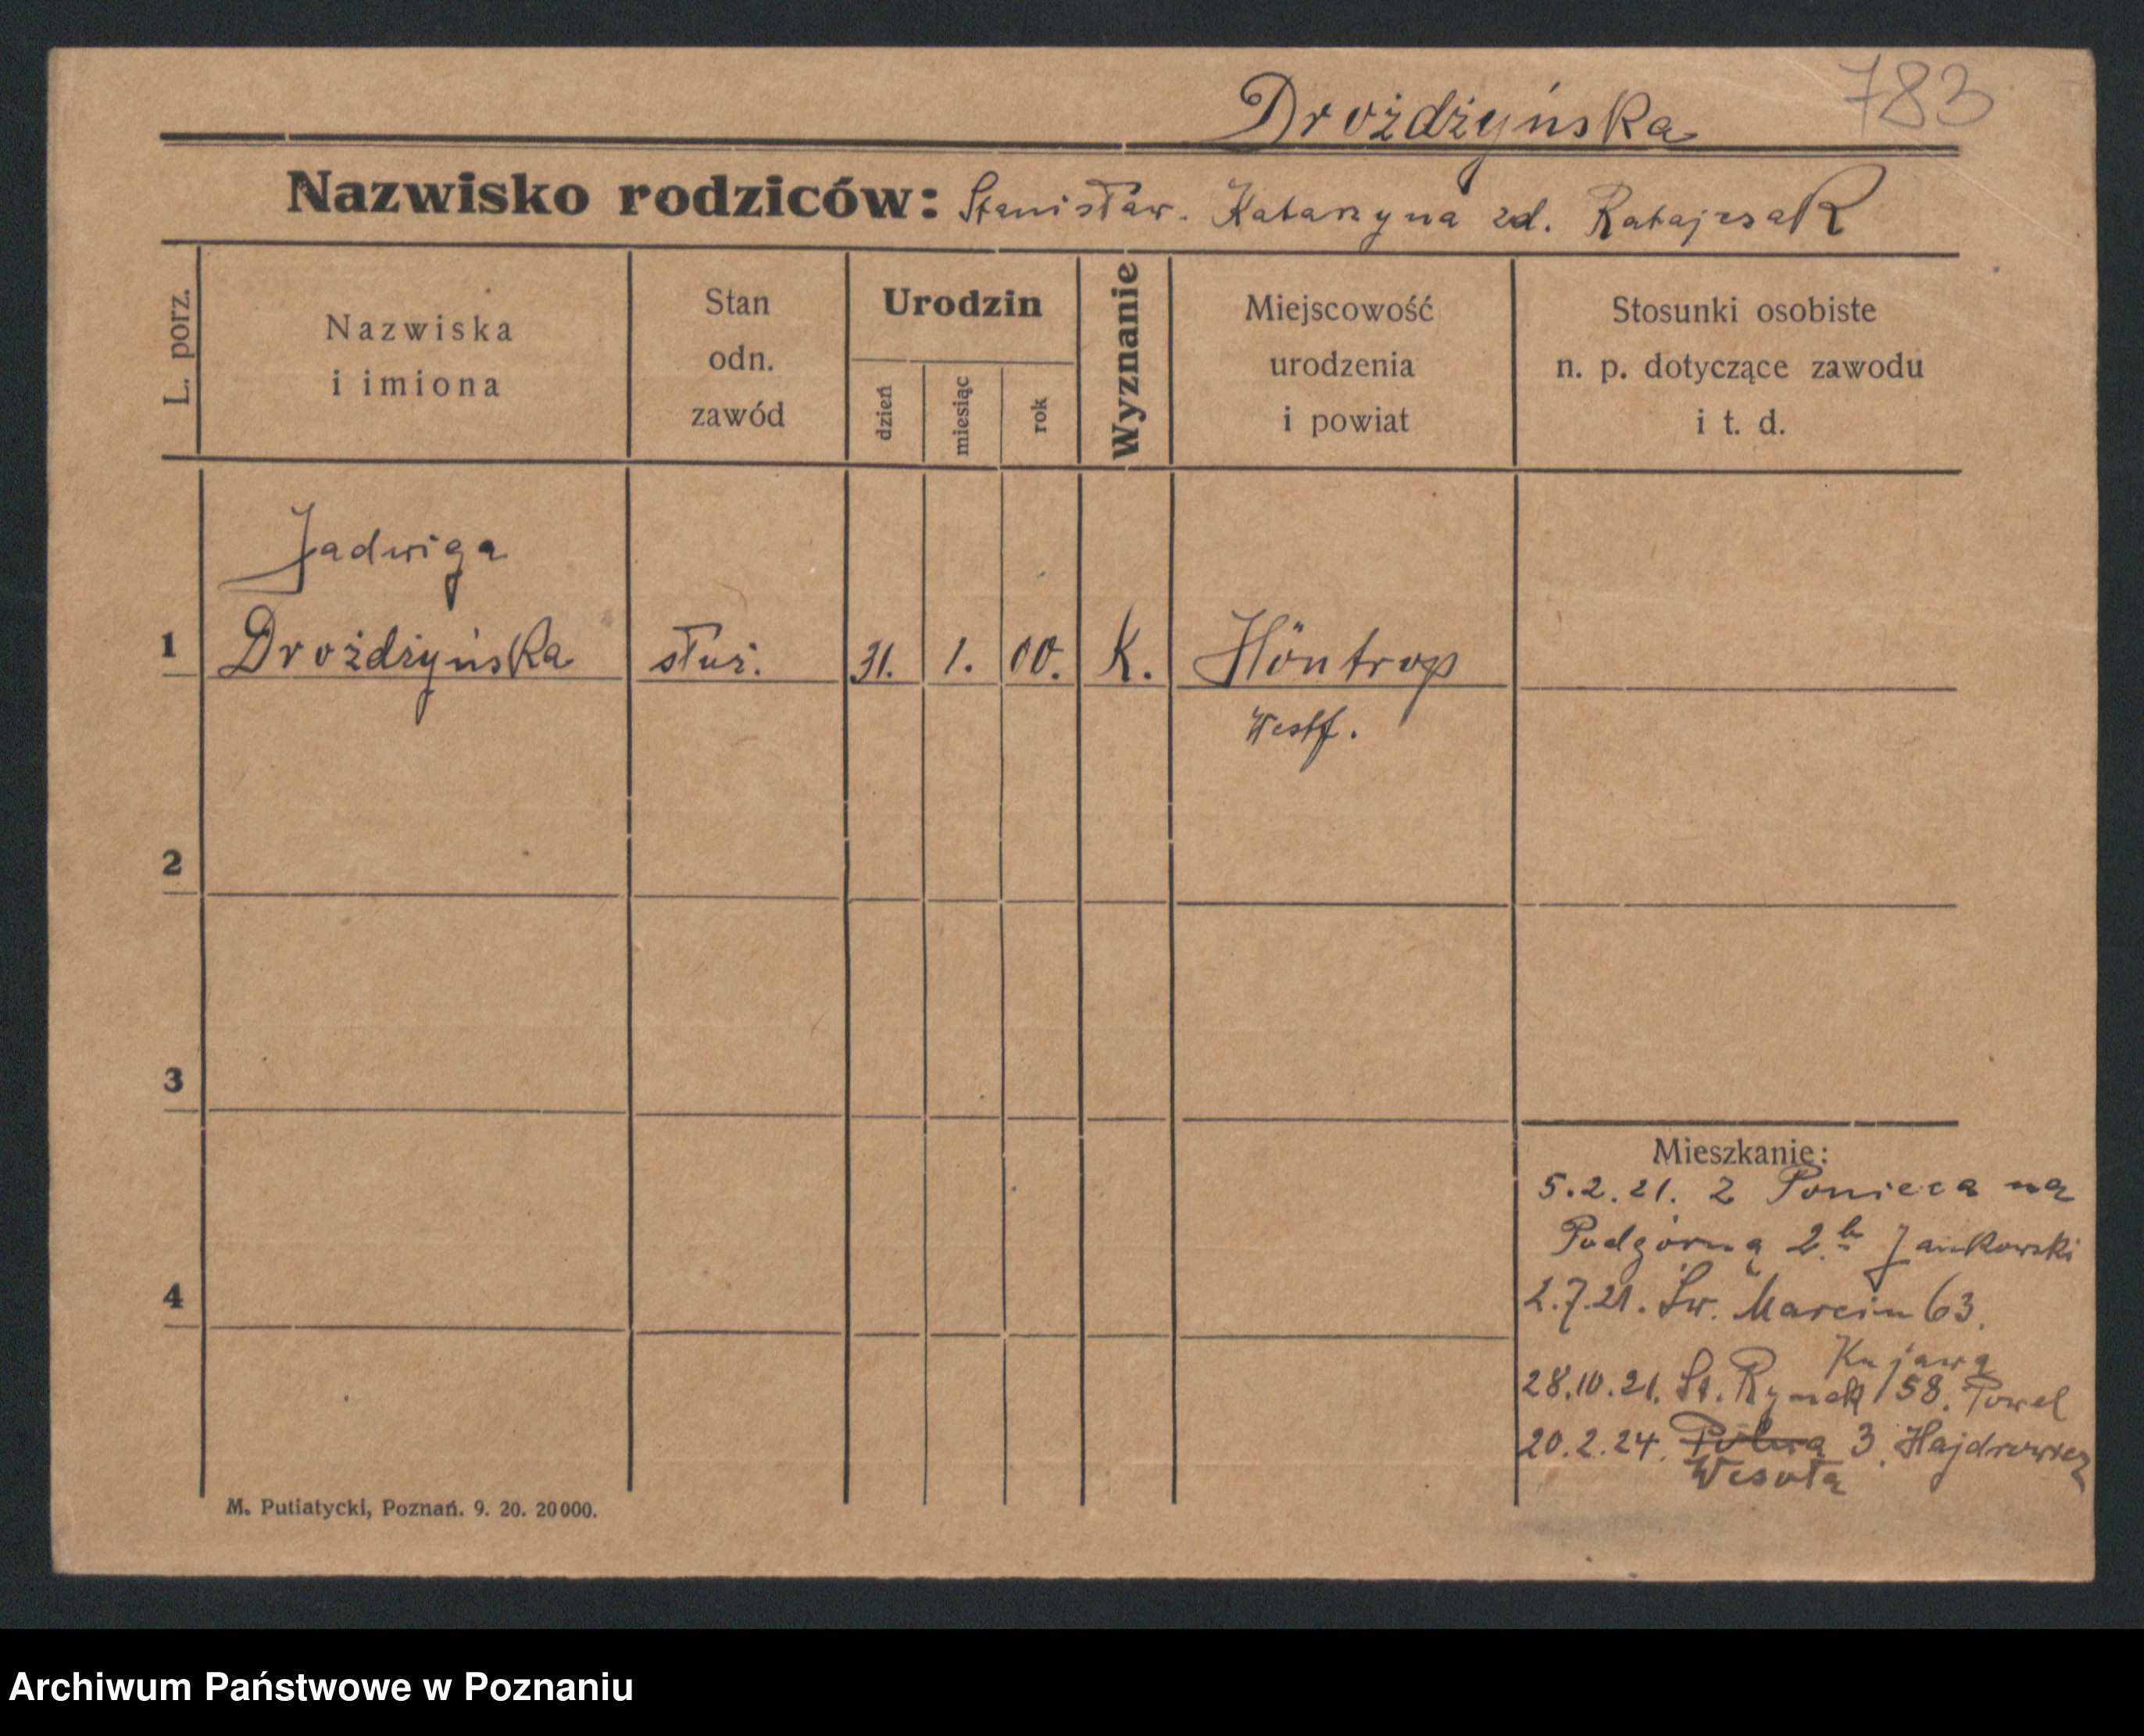 783
Drożdżyńska
Nazwisko rodziców: Stanisław. Katarzyna zd. Ratajczak
L. porz.
Nazwiska
i imiona
Stan
odn.
zawód
Urodzin
dzień
miesiąc
rok
Wyznanie
Miejscowość
urodzenia
i powiat
Stosunki osobiste
n. p. dotyczące zawodu
i t. d.
Jadwiga
1 Drożdżyńska służ. 31. 1. 00. K. Höntrop
Westf.
2
3
4
Mieszkanie:
5.2.21. z Ponieca na
Podgórną 2 b Jankowski
2.7.21. Św. Marcin 63.
Kujawa
28.10.21. St. Rynek 58.
20.2.24. Polna 3.
Wesoła
M. Putiatycki, Poznań. 9. 20. 20000.
Archiwum Państwowe w Poznaniu